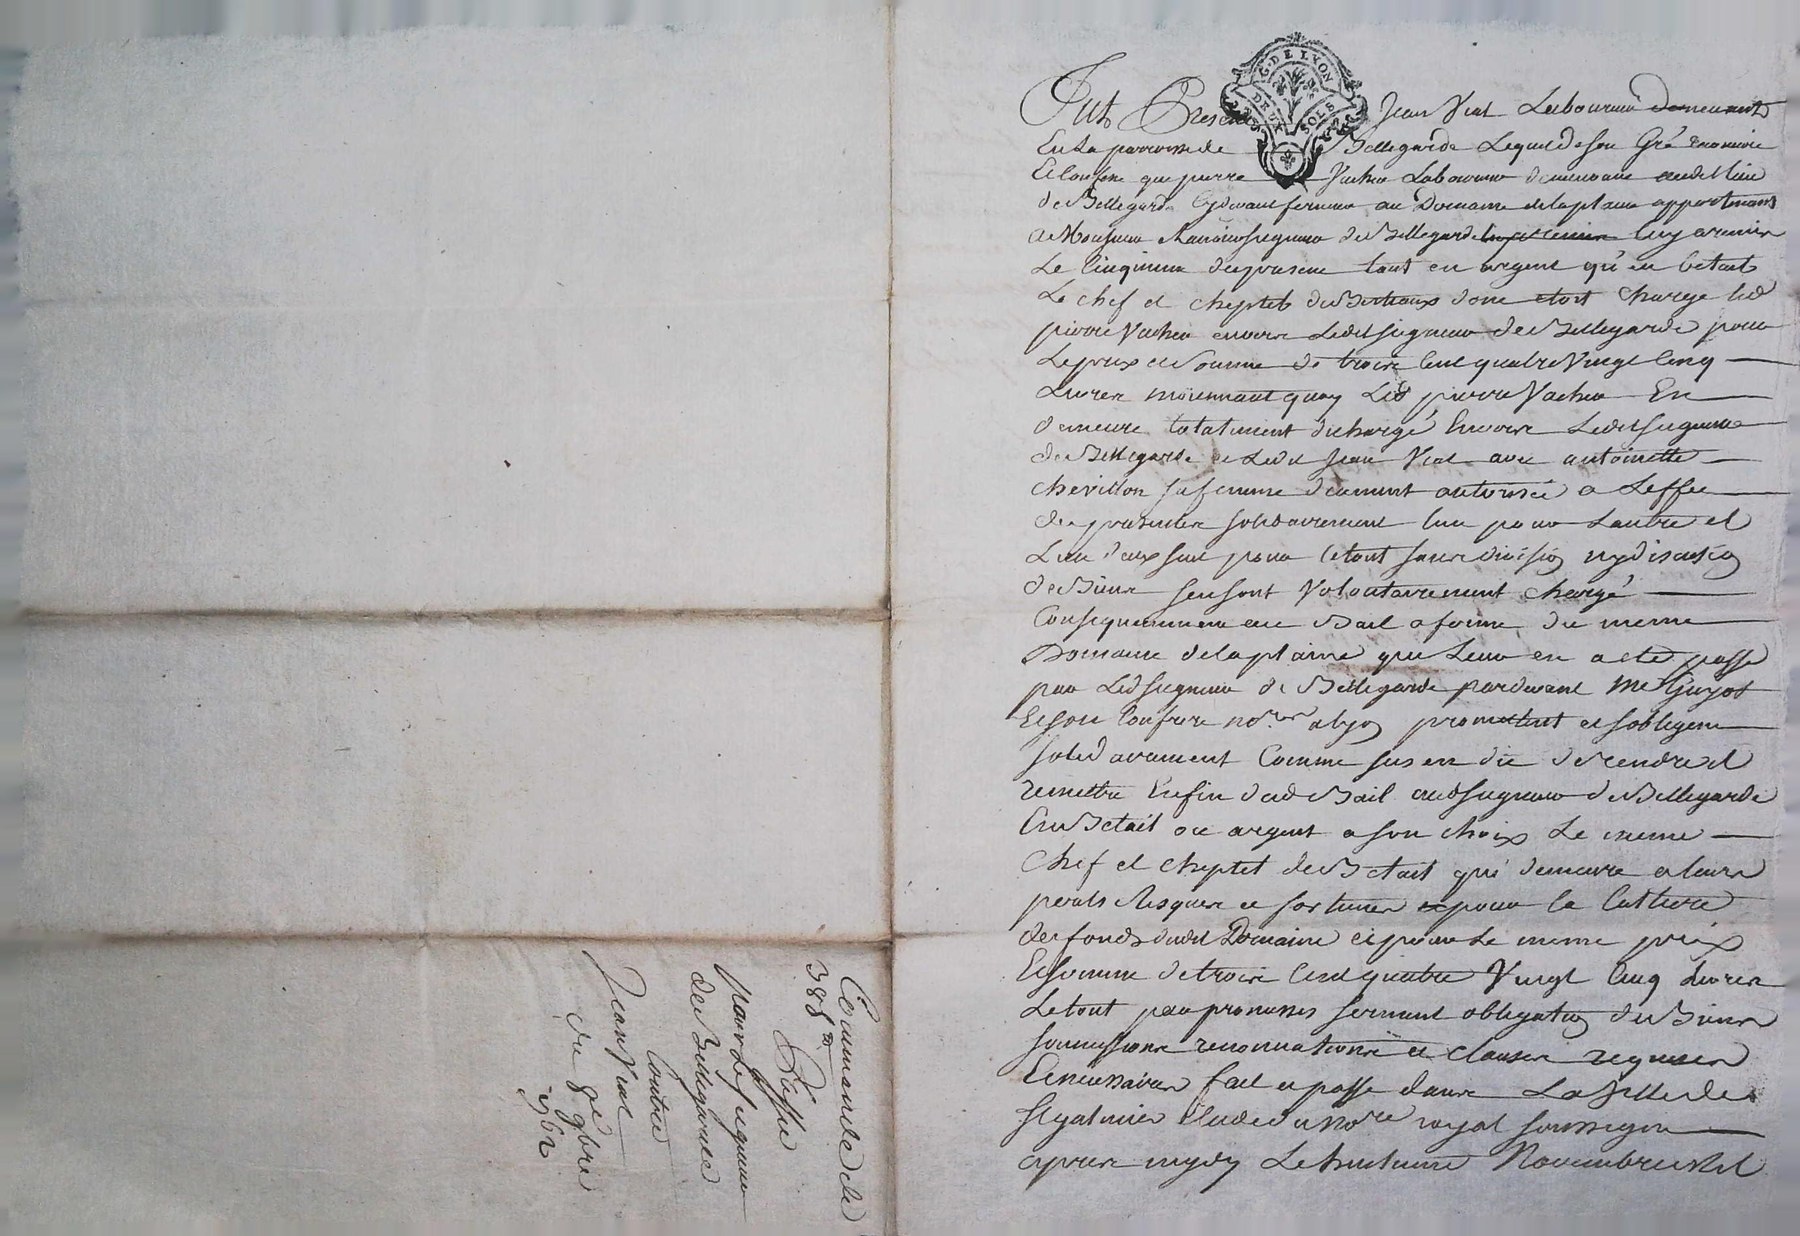 G. DE LYON
DEUX SOLS
Fut Present Jean Vial Laboureur demeurant
En la parroisse de Bellegarde Lequel de son Gré reconnoie
Et Confesse que pierre Vacher Laboureur demeurant audit lieu
de Bellegarde Cydevant fermier au Domaine de la plaine appartenant
A Monsieur seigneur de Bellegarde luy a remis
Le Cinquieme du present tant en argent qu'en betail
Le chef et cheptel de Bestiaux dont etoit Charge led
pierre Vacher envers Ledit seigneur de Bellegarde pour
Le prix et Somme de trois Cent quatre Vingt Cinq
Livres moiennant quoy Led pierre Vacher En
demeure totalement dechargé Envers Ledit seigneur
de Bellegarde et Ledit Jean Vial avec antoinette
chevillon sa femme deument autorisée a Leffet
des presentes solidairement lun pour Lautre et
Lun deux seul pour le tout sans division ny discution
de Biens se sont Volontairement chargé
Consequemment au Bail a ferme du meme
Domaine de la plaine qui Leur en a ete passé
par Led seigneur de Bellegarde pardevant Me Guyot
Et son Confrere nores a lyon promettent et sobligent
solidairement Comme sus en dit de rendre et
remettre En fin dud Bail aud seigneur de Bellegarde
En Betail ou argent a son choix Le meme
Chef et cheptel de Betail qui demeure a leurs
perils Risques et fortunes pour la Culture
des fonds dudit Domaine et pour Le meme prix
Et somme de trois Cent quatre Vingt Cinq Livres
Le tout par promesses serment obligation de Biens
soumissions renonciations et clauses requises
Et necessaires fait et passé dans La Ville de
St galmier Etude du nore royal soussigné
apres mydy Le huitieme Novembre mil
Commande de
385 ₶
Passée
pour Le seigneur
de Bellegarde
Contre
Jean Vial
du 8e 9bre
1762